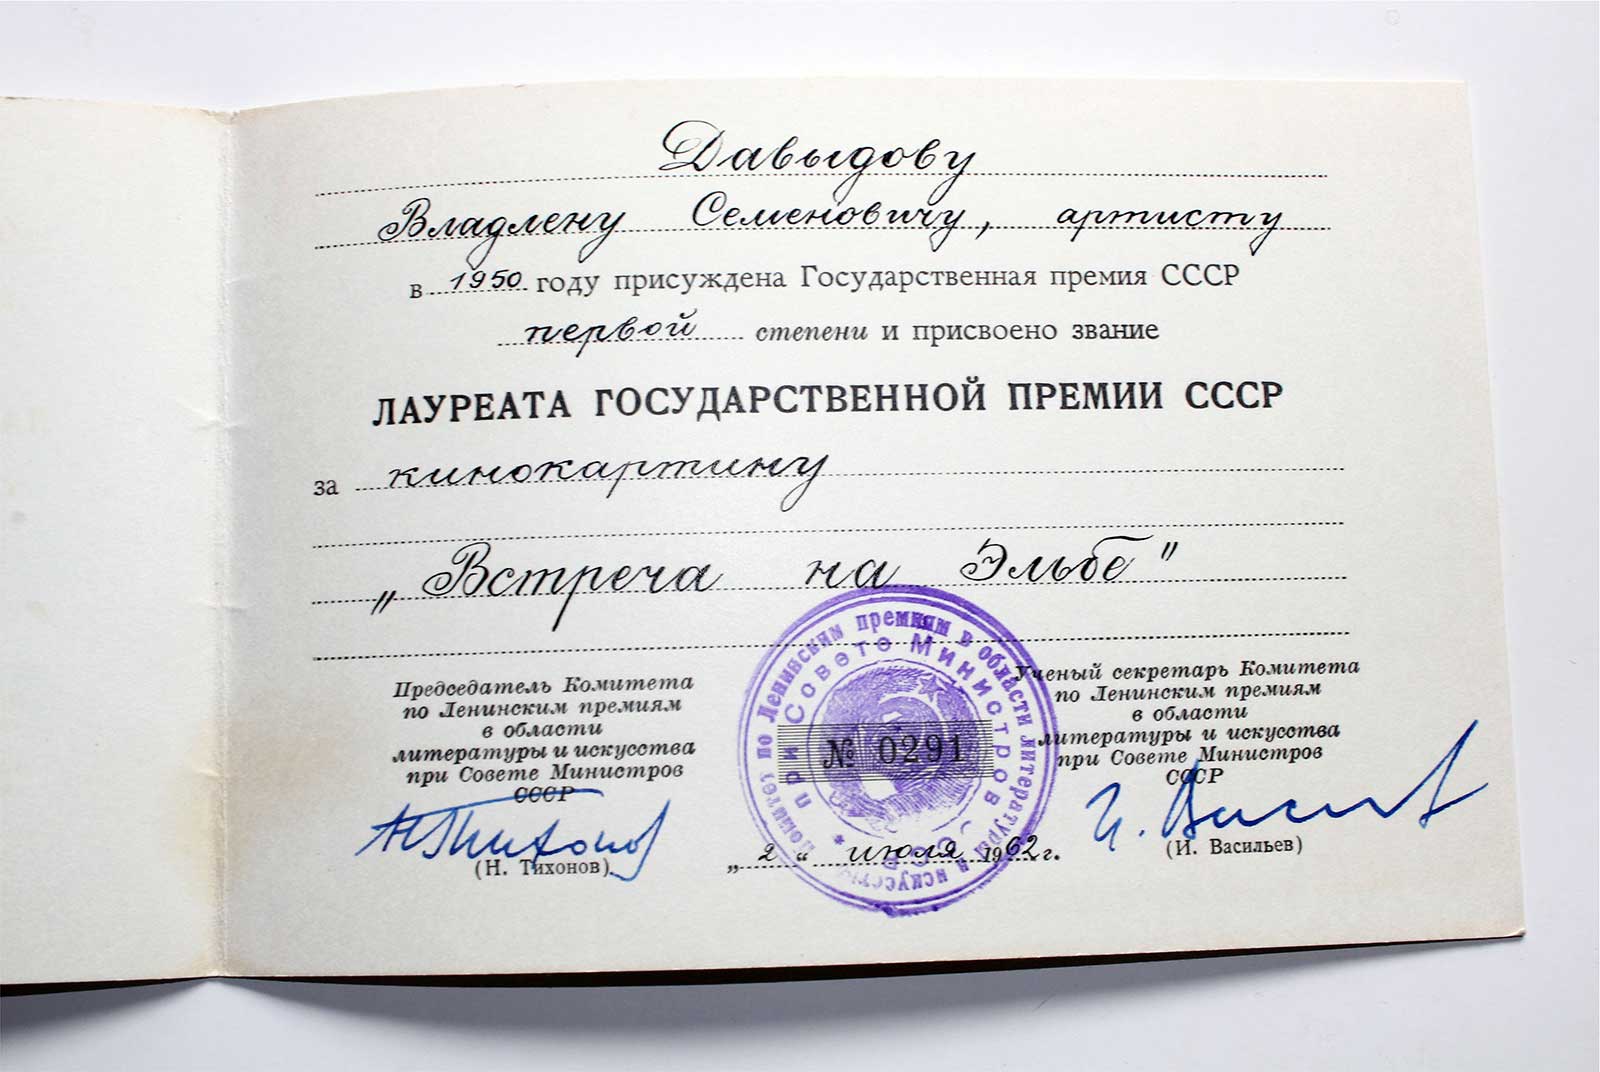 Давыдову
Владлену Семеновичу, артисту
в 1950 году присуждена Государственная премия СССР
первой степени и присвоено звание
ЛАУРЕАТА ГОСУДАРСТВЕННОЙ ПРЕМИИ СССР
за кинокартину
„Встреча на Эльбе"
Председатель Комитета
по Ленинским премиям
в области
литературы и искусства
при Совете Министров
СССР
Н Тихонов
(Н. Тихонов)
Комитет по Ленинским премиям в области литературы и искусства
при Совете Министров СССР
№ 0291
„2" июля 1962 г.
Ученый секретарь Комитета
по Ленинским премиям
в области
литературы и искусства
при Совете Министров
СССР
И. Васильев
(И. Васильев)